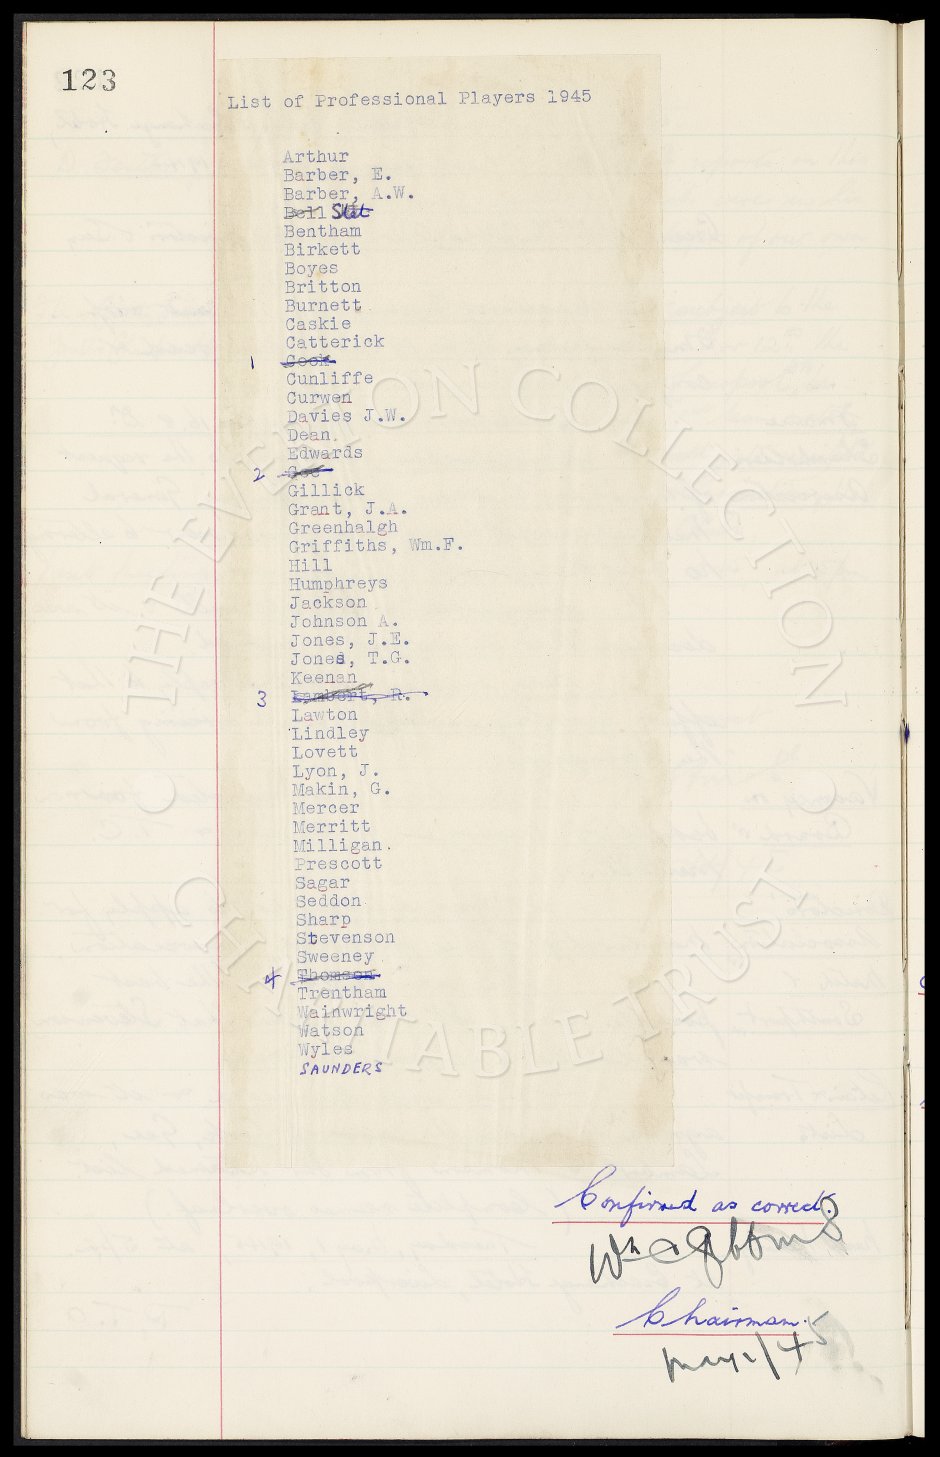 123
List of Professional Players 1945
Arthur
Barber, E.
Barber, A.W.
Bell Stet
Bentham
Birkett
Boyes
Britton
Burnett
Caskie
Catterick
1 Cook
Cunliffe
Curwen
Davies J.W.
Dean
Edwards
2 Gee
Gillick
Grant, J.A.
Greenhalgh
Griffiths, Wm.F.
Hill
Humphreys
Jackson
Johnson A.
Jones, J.E.
Jones, T.G.
Keenan
3 Lambert, R.
Lawton
Lindley
Lovett
Lyon, J.
Makin, G.
Mercer
Merritt
Milligan.
Prescott
Sagar
Seddon
Sharp
Stevenson
Sweeney
4 Thomson
Trentham
Wainwright
Watson
Wyles
SAUNDERS
Confirmed as correct.
Wm C Gibbins
Chairman.
THE EVERTON COLLECTION
CHARITABLE TRUST